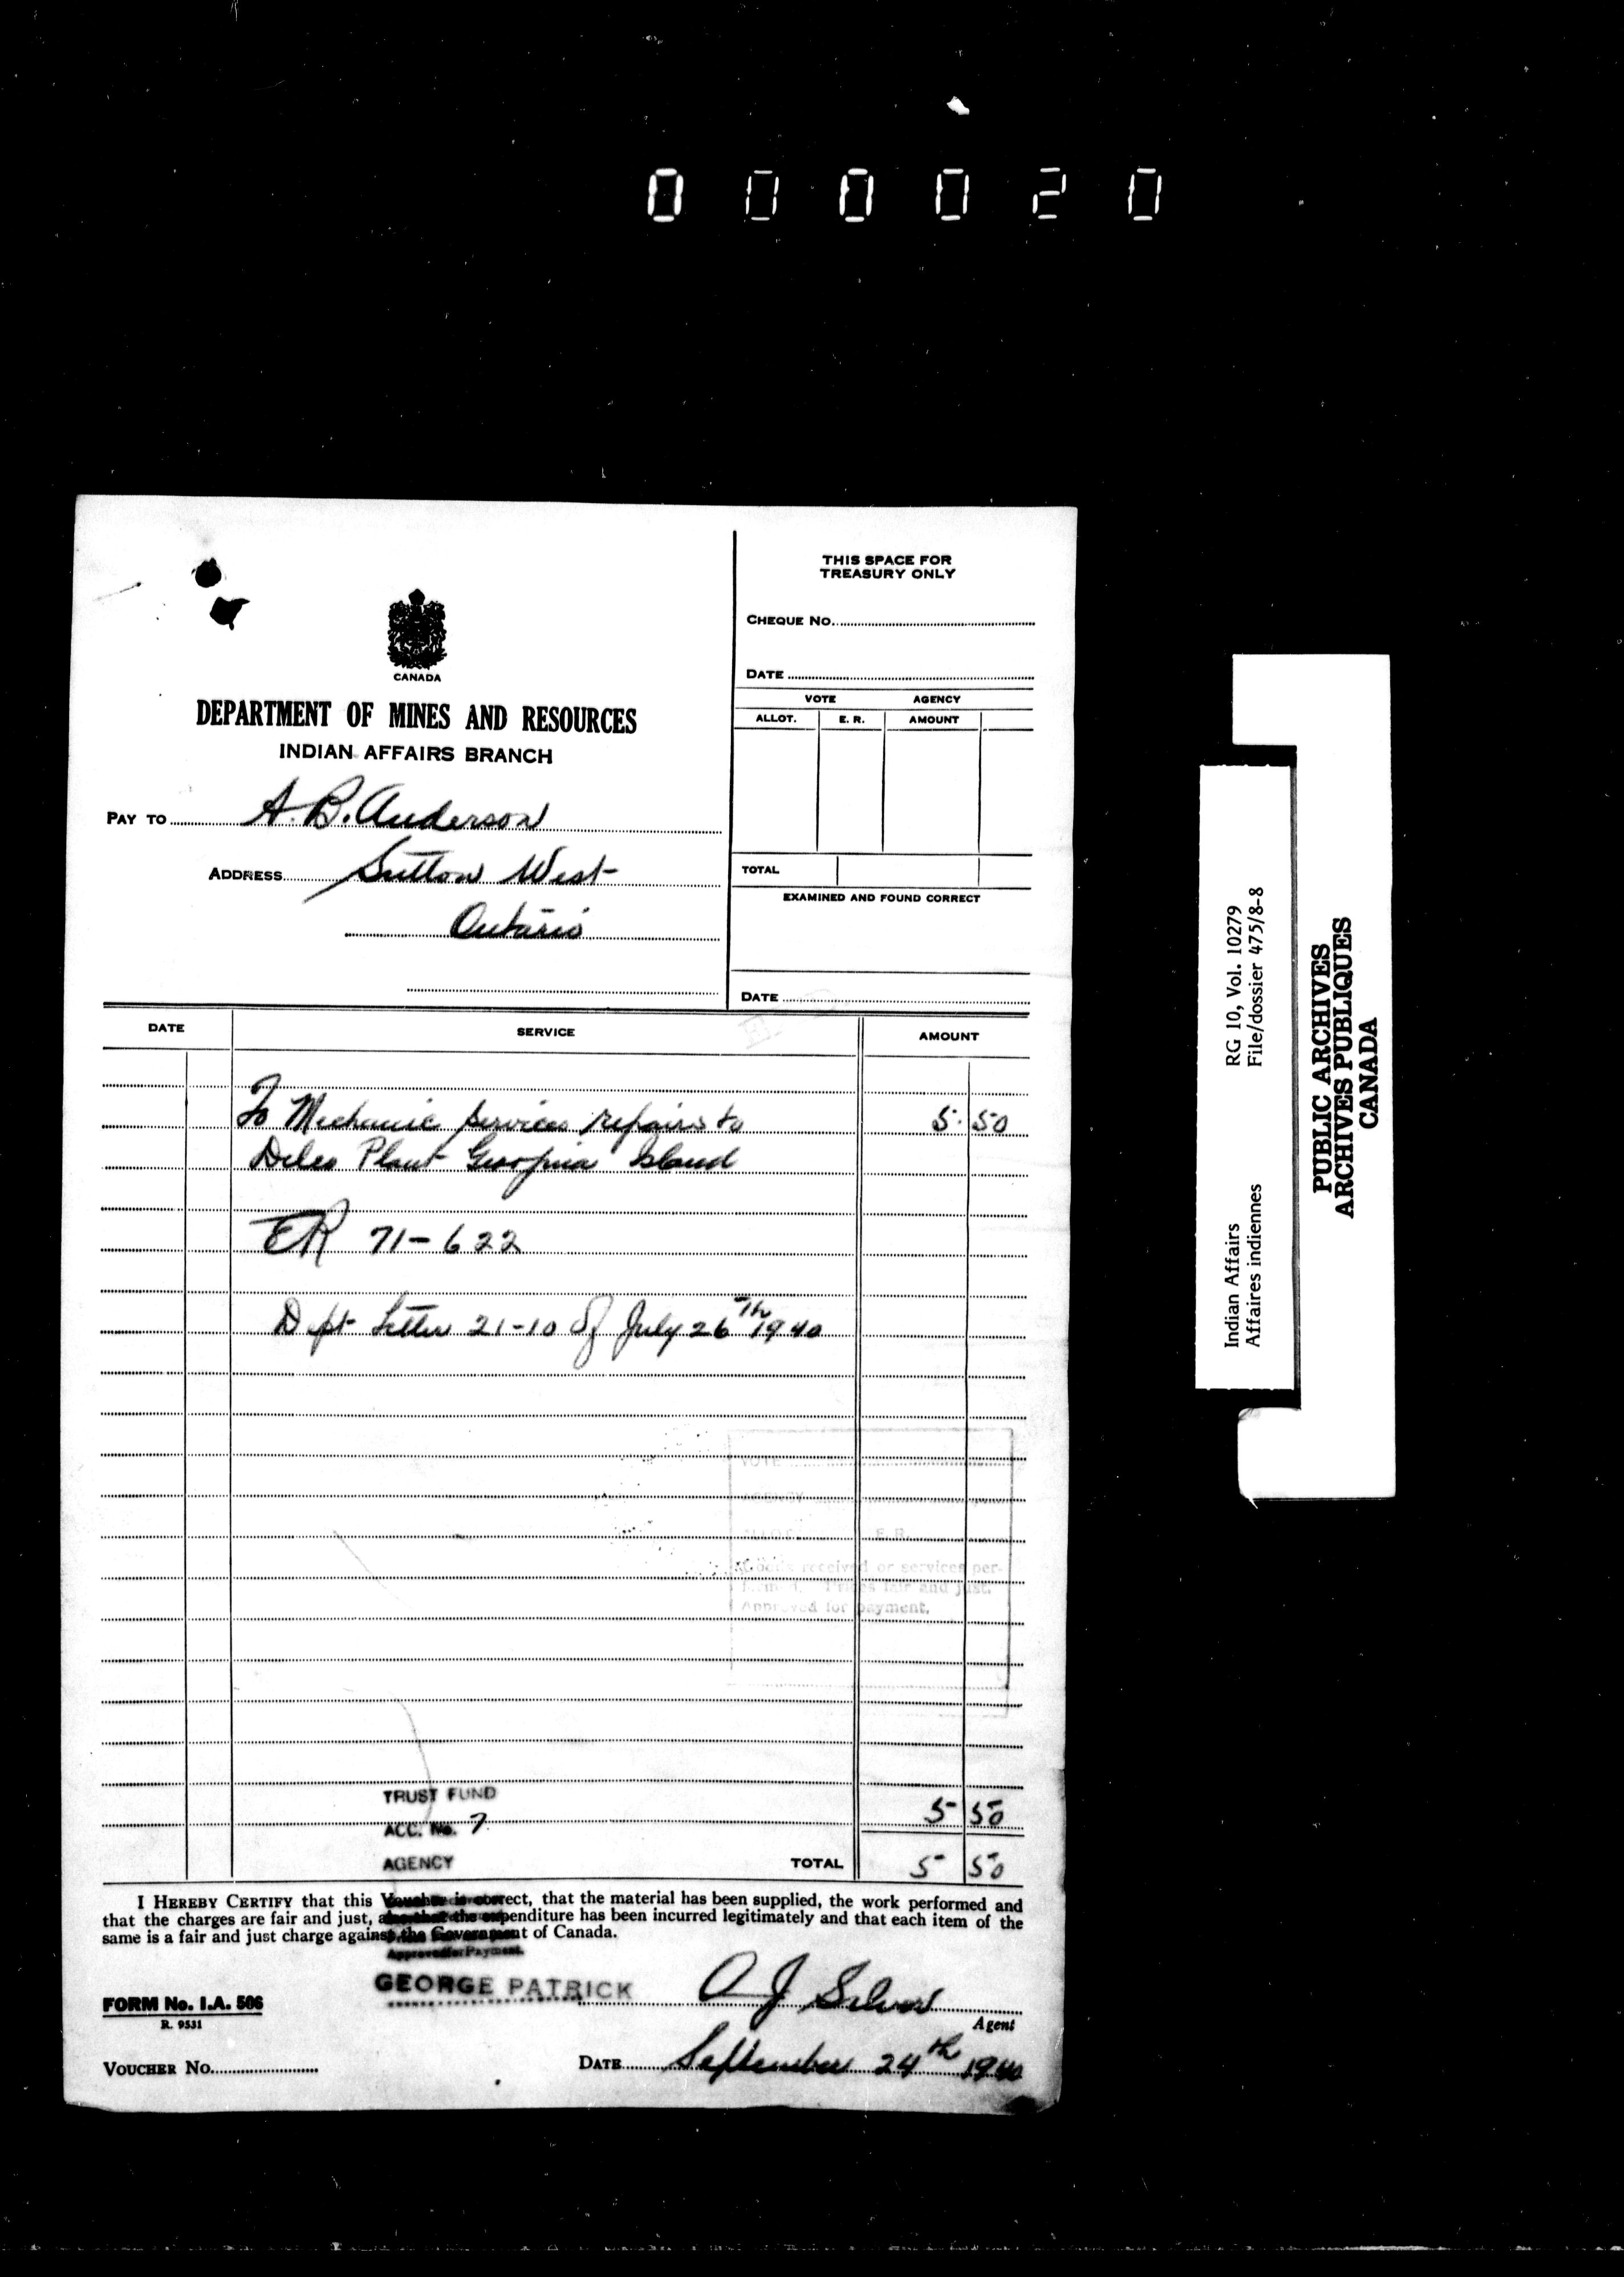 000020
THIS SPACE FOR
TREASURY ONLY
CHEQUE No.
DATE
VOTE AGENCY
ALLOT. E. R. AMOUNT
TOTAL
EXAMINED AND FOUND CORRECT
DATE
CANADA
DEPARTMENT OF MINES AND RESOURCES
INDIAN AFFAIRS BRANCH
PAY TO A. B. Anderson
ADDRESS Sutton West
Ontario
DATE SERVICE AMOUNT
To Mechanic services repairs to 5.50
Delco Plant Georgina Island
ER 71-622
Dept Letter 21-10 of July 26th 1940
VOTE
AGENCY
ALLOT. E. R.
Goods received or services per-
formed. Prices fair and just.
Approved for payment.
TRUST FUND
ACC. No. 7 5 50
AGENCY TOTAL 5 50
I HEREBY CERTIFY that this Voucher is correct, that the material has been supplied, the work performed and
that the charges are fair and just, also that the expenditure has been incurred legitimately and that each item of the
same is a fair and just charge against the Government of Canada.
Approved for Payment.
GEORGE PATRICK
A J
Agent
FORM No. I.A. 506
R. 9531
VOUCHER No. DATE September 24th 1940
Indian Affairs RG 10, Vol. 10279
Affaires indiennes File/dossier 475/8-8
PUBLIC ARCHIVES
ARCHIVES PUBLIQUES
CANADA